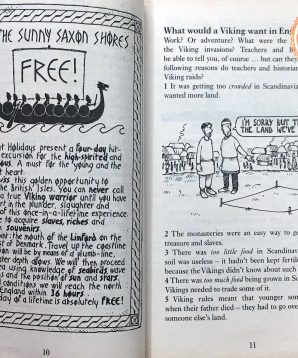 THE SUNNY SAXON SHORES
FREE!
Holidays present a four-day hit-
excursion for the high-spirited and
. A must for the young and the
heart.
this golden opportunity to
the British Isles. You can never call
a true Viking warrior until you have
part in the plunder, slaughter and
of this once-in-a-lifetime experience
to acquire slaves, riches and
souvenirs.
the mouth of the Limford on the
of Denmark. Travel up the coastline
will be by means of a plumb-line,
water depth allows. We will then proceed
sea using knowledge of seabirds wave
and the position of sun and stars.
conditions we will reach the north
England within 36 hours.
day of a lifetime is absolutely FREE!
10
What would a Viking want in En
Work? Or adventure? What were the
the Viking invasions? Teachers and
be able to tell you, of course ... but can they
following reasons do teachers and historian
Viking raids?
1 It was getting too crowded in Scandinavia
wanted more land.
I'M SORRY BUT TH
THE LAND WE'VE
2 The monasteries were an easy way to ge
treasure and slaves.
3 There was too little food in Scandinavia
soil was useless – it hadn't been kept fertile
because the Vikings didn't know about such
4 There was too much food being grown in Sc
Vikings needed to trade some of it.
5 Viking rules meant that younger son
when their father died – they had to go over
someone else's land.
11